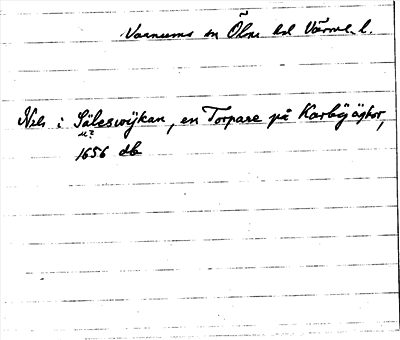 Varnums sn Ölme hd Värml. l.
Nils i Säleswijkan, en Torpare på Karbÿ ägor,
u?
1656 db